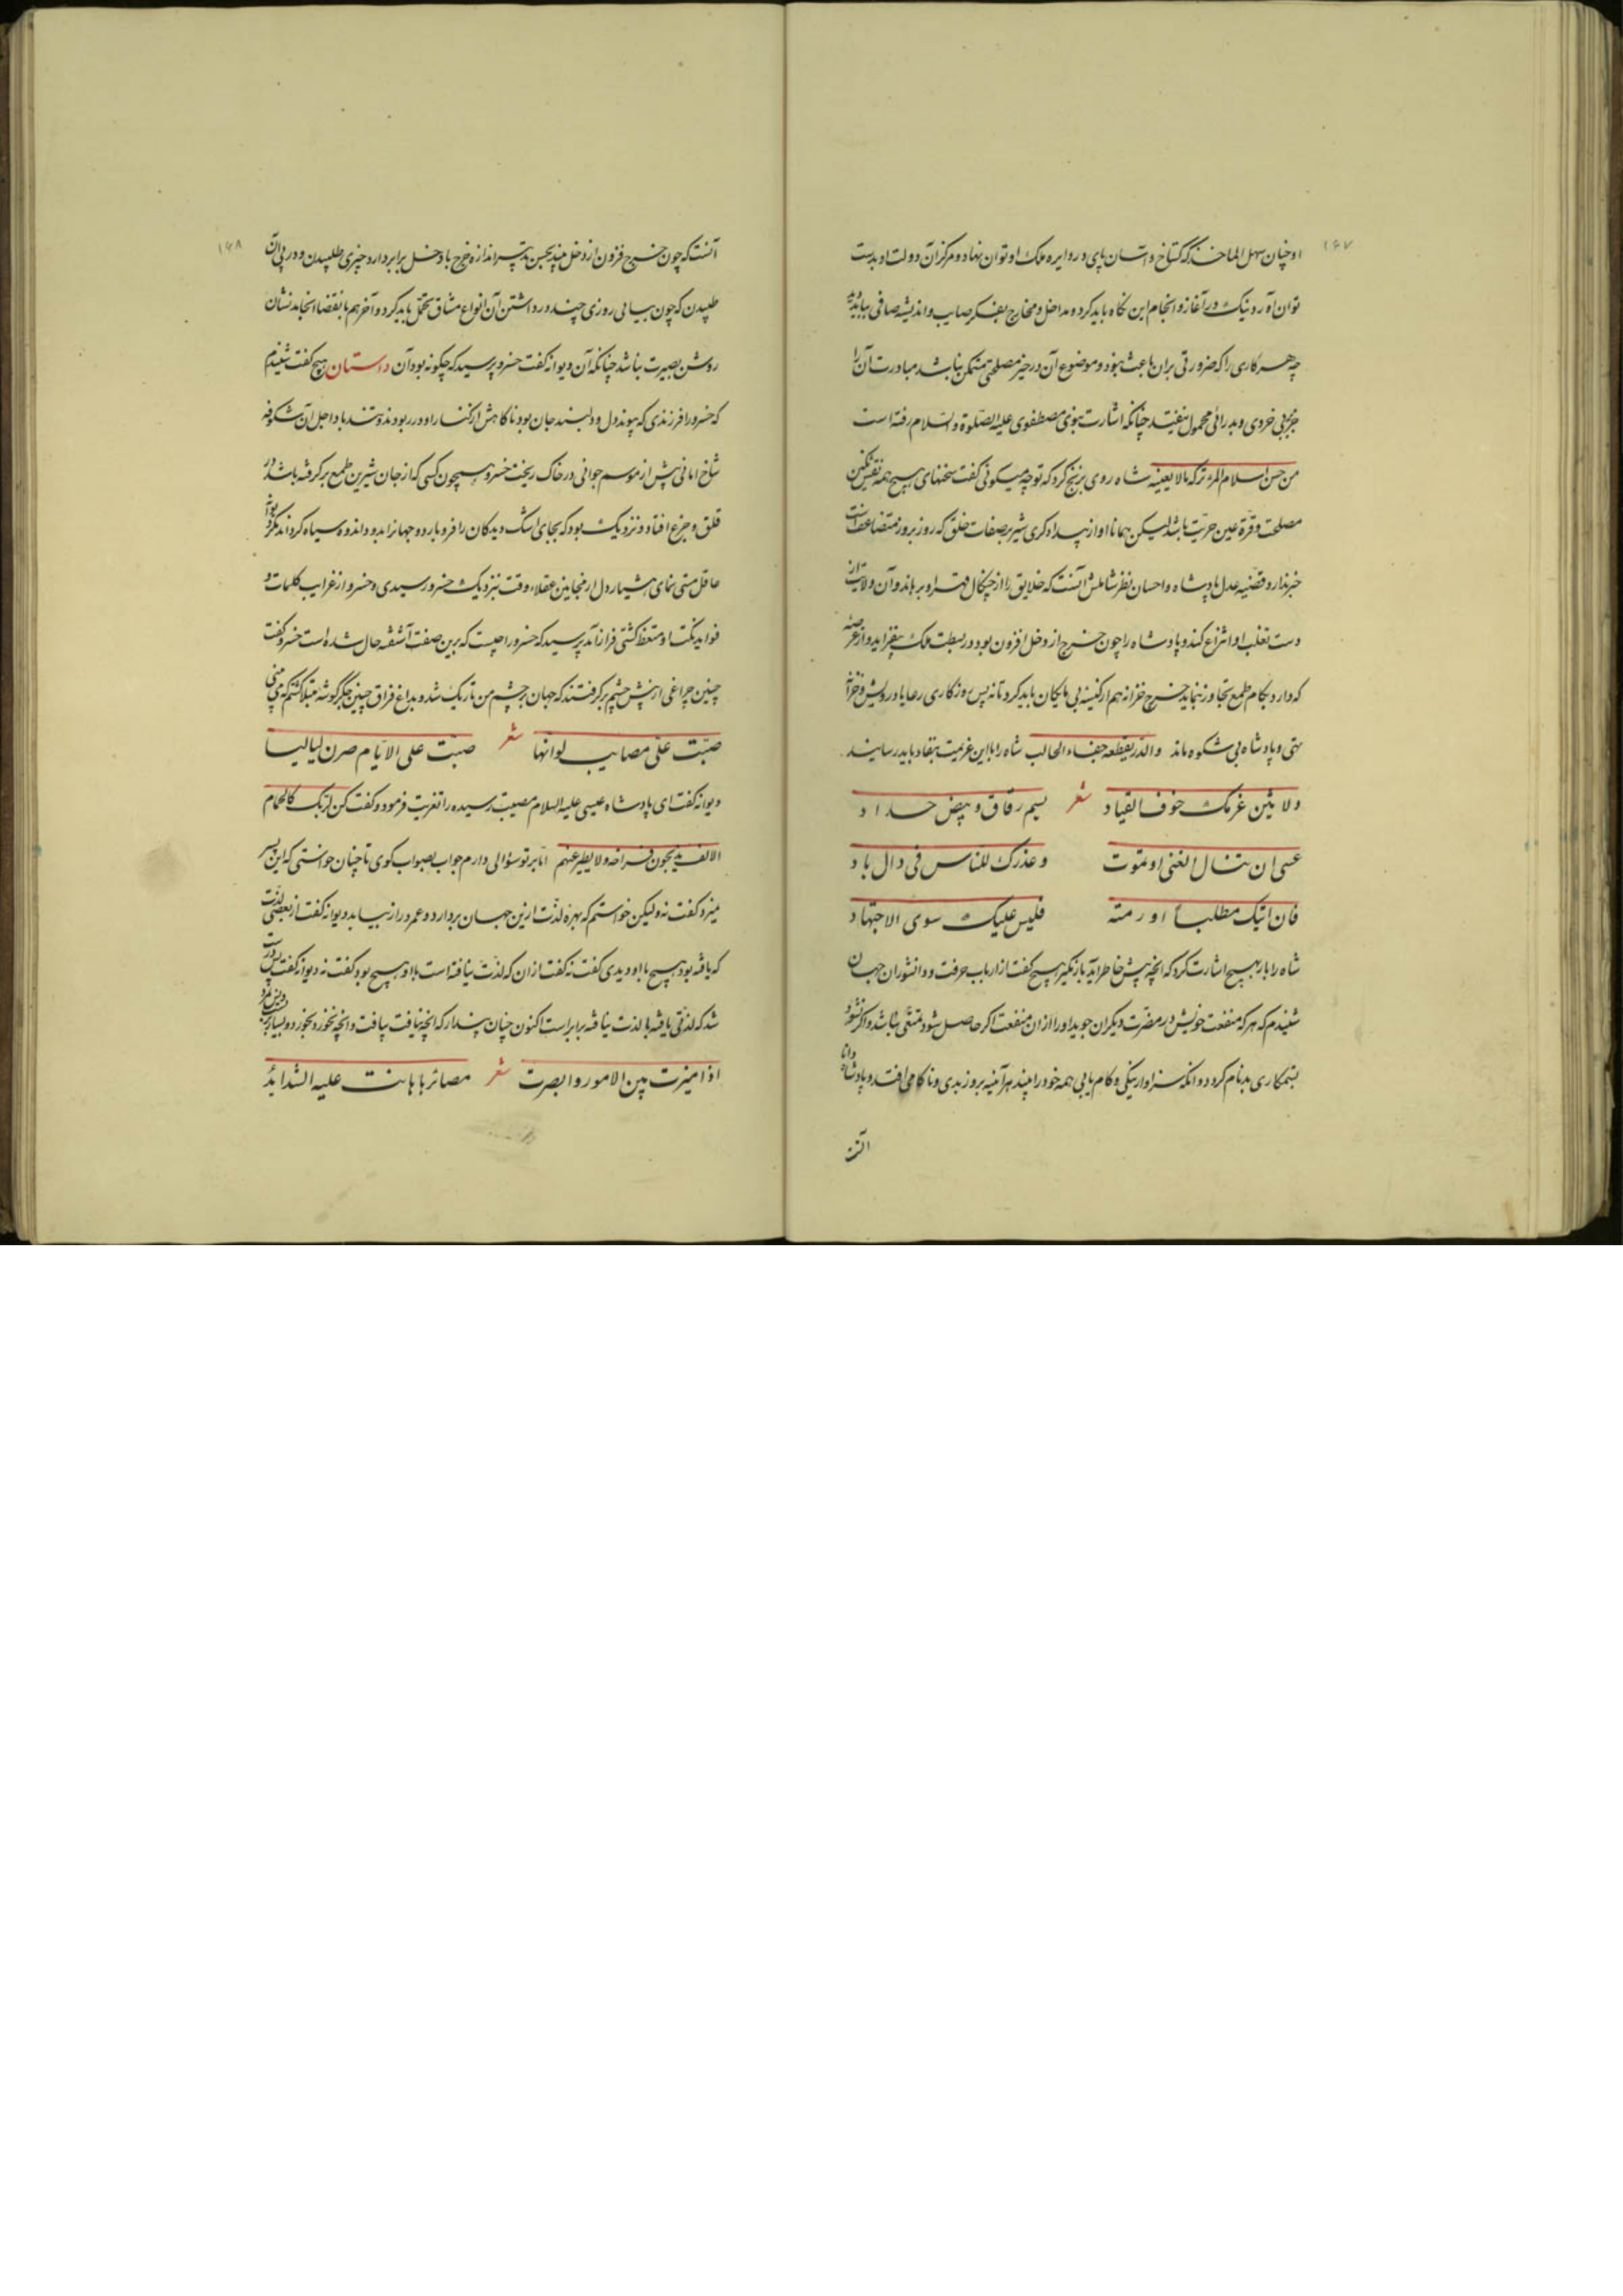 ۱۶۷
او چنان سهل الماخذ که گستاخ و آسان پای در دایره ملک او توان نهاد و مرکز آن دولت او بدست
توان آورد نیک در آغاز و انجام این نگاه باید کرد و مداخل و مخارج بفکر صایب و اندیشه صافی بباید دید
چه هر کاری را که ضرورتی بران باعث نبود و موضوع آن در حیز مصلحتی متمکن نباشد مبادرت آن را
جز بی خردی و بد رائی محمول نیفتد چنانکه اشارت نبوی مصطفوی علیه الصلوة و السلام رفته است
من حسن اسلام المرء ترکه مالا یعنیه شاه روی بزنج کرد که تو چه میگوئی گفت سخنهای هنج همه نقش نگین
مصلحت و قرة عین حریت باشد لیکن همانا او از بیدادگری شیر بر صفات خلق که روز بروز متضاعفست
خبر ندارد و قضیه عدل پادشاه و احسان نظر شاملش آنست که خلایق را از چنگال قهر او برهاند و آن ولایت از
دست تغلب او انتزاع کند و پادشاه را چون خرج از دخل افزون بود در بسطت ملک بیفزاید و از عرصه
که دارد بگام طمع تجاوز ننماید خرج خزانه هم از کیسه بی مایگان باید کرد تا نه پس روزگاری رعایا درویش و خزانه
تهی و پادشاه بی شکوه ماند والدر یقطعه جفاء الحالب شاه را با این عزیمت بنفاد باید رسانید
ولا یثن عزمک خوف القیاد شعر بسم رقاق و بیض حداد
عسی ان تنال الغنی او تموت وعذرک للناس فی ذاک باد
فان اتیک مطلبا او رمته فلیس علیک سوی الاجتهاد
شاه را بار بهنج اشارت کرد که آنچه پیش خاطر آید باز نگیر هنج گفت از ارباب حرفت و دانشوران جهان
شنیدم که هر که منفعت خویش در مضرت دیگران جوید او را از آن منفعت اگر حاصل شود تمتعی نباشد و اگر نشود
بستمکاری بدنام گردد و آنکه سزاوار نیکی و کام یابی همه خود را بیند هر آینه بروز بدی و ناکامی افتد و پادشاه دانا
آنست
۱۶۸
آنست که چون خرج فزون از دخل بیند بحسن تدبیر اندازه خرج با دخل برابر دارد چیزی طلبیدن و در پی آن
طپیدن که چون بیابی روزی چند در داشتن آن انواع مشاق تحمل باید کرد و آخر هم بانقضا انجامد نشان
روشن بصیرت نباشد چنانکه آن دیوانه گفت خسرو پرسید که چگونه بود آن داستان هنج گفت شنیدم
که خسرو را فرزندی که پیوند دل و دلبند جان بود ناگاهش از کنار او در ربودند و تند باد اجل آن شکوفه
شاخ امانی پیش از موسم جوانی در خاک ریخت خسرو همچون کسی که از جان شیرین طمع برگرفته باشد در
قلق و جزع افتاد و نزدیک بود که بجای اشک دیدگان را فرو بارد و جهان را بدود اندوه سیاه گرداند مگر دیوانه
عاقل مستی نمای هشیار دل از مجانین عقلاء وقت نزدیک خسرو رسیدی و خسرو از غرایب کلمات و
فواید نکت او متعظ گشتی فراز آمد پرسید که خسرو را چیست که برین صفت آشفته حال شده است خسرو گفت
چنین چراغی از پیش چشمم برگرفتند که جهان بر چشم من تاریک شد و بداغ فراق چنین جگر گوشه مبتلا گشتم که می بینی
صبت علی مصایب لو انها شعر صبت علی الایام صرن لیالیا
دیوانه گفت ای پادشاه عیسی علیه السلام مصیبت رسیده را تعزیت فرمود و گفت کن لربک کالحمام
الالف یذبحون فراخه ولا یطیر عنهم اما بر تو سؤالی دارم جواب بصواب گوی تا چنان خواستی که این پسر
نمیرد گفت نه ولیکن خواستم که بهره لذت ازین جهان بردارد و عمر دراز بیابد دیوانه گفت از بعضی لذت
که یافته بود هیچ با او دیدی گفت نه گفت از آن که لذت نیافته است با او هیچ بود گفت نه دیوانه گفت پس درست
شد که لذتی یافته با لذت نیافته برابر است اکنون چنان پندار که آنچه نیافت بیافت و آنچه نخورد بخورد و بسیار بزیست و پس بمرد
اذا میزت بین الامور وابصرت شعر مصائرها هانت علیه الشداید